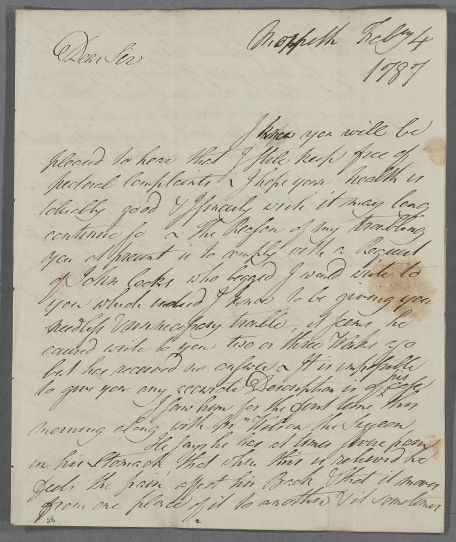 Morpeth Feby 4
1787
Dear Sir
I know you will be
pleased to hear that I still keep free of
pectoral complaints & I hope your health is
tolerably good & I sincerely wish it may long
continue so & The Reason of my troubling
you at present is to comply with a Request
of John Cooks who begged I would write to
you which indeed I know to be giving you
needless & unnecessary trouble - it seems he
caused write to you two or three Weeks ago
but has received no answer & It is impossible
to give you any accurate Description of his Case
I saw him for the first time this
morning along with Mr Wilson the Surgeon
He says he has at times severe pains
in his Stomach, that when this is relieved he
feels the pain affect his Back, & that it moves
from one place of it to another & it sometimes